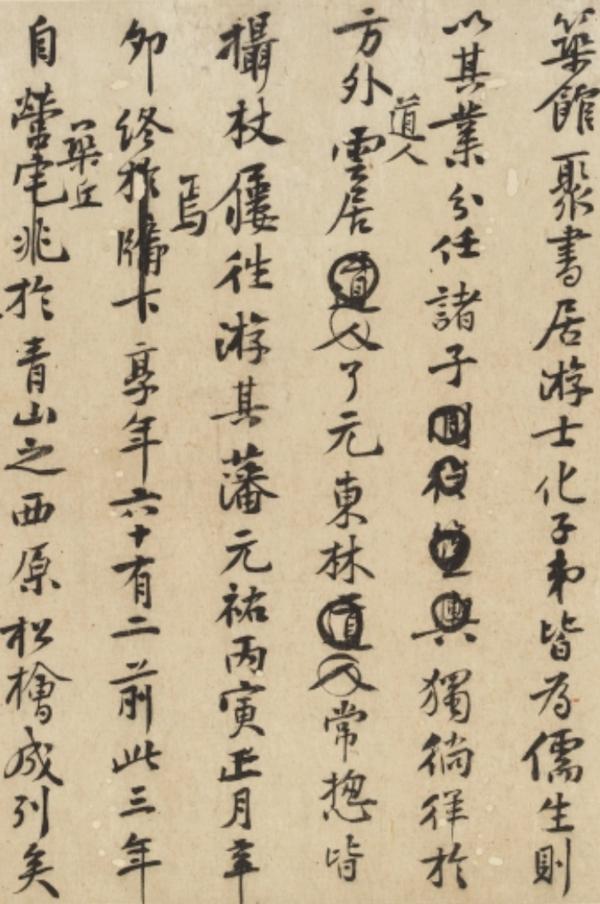 築館聚書居游士化子弟皆為儒生則
以其業分任諸子獨徜徉於
道人
方外雲居道人了元東林道人常揔皆
攝杖屨往游其藩元祐丙寅正月辛
焉
卯終於牖下享年六十有二前此三年
築丘
自營宅兆於青山之西原松檜成列矣